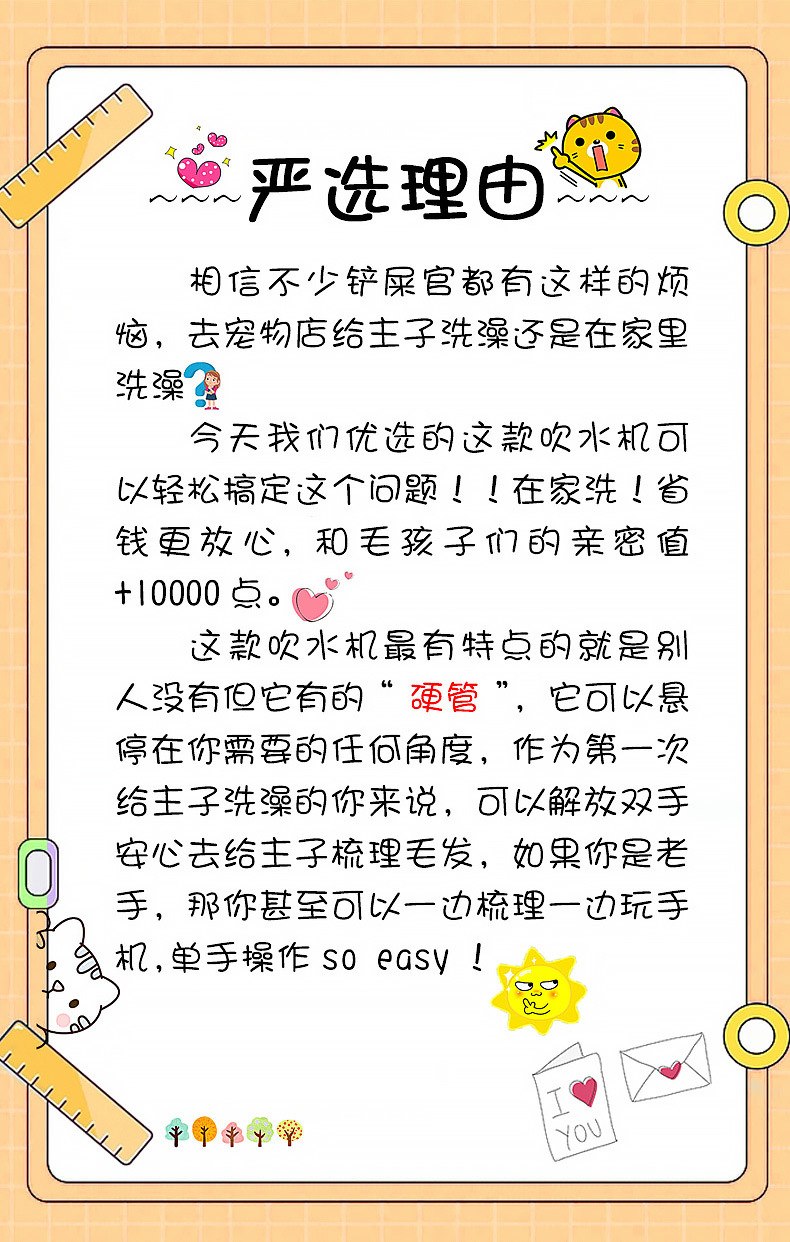 严选理由
相信不少铲屎官都有这样的烦
恼，去宠物店给主子洗澡还是在家里
洗澡?
今天我们优选的这款吹水机可
以轻松搞定这个问题！！在家洗！省
钱更放心，和毛孩子们的亲密值
+10000点。
这款吹水机最有特点的就是别
人没有但它有的“硬管”，它可以悬
停在你需要的任何角度，作为第一次
给主子洗澡的你来说，可以解放双手
安心去给主子梳理毛发，如果你是老
手，那你甚至可以一边梳理一边玩手
机,单手操作so easy！
I
YOU